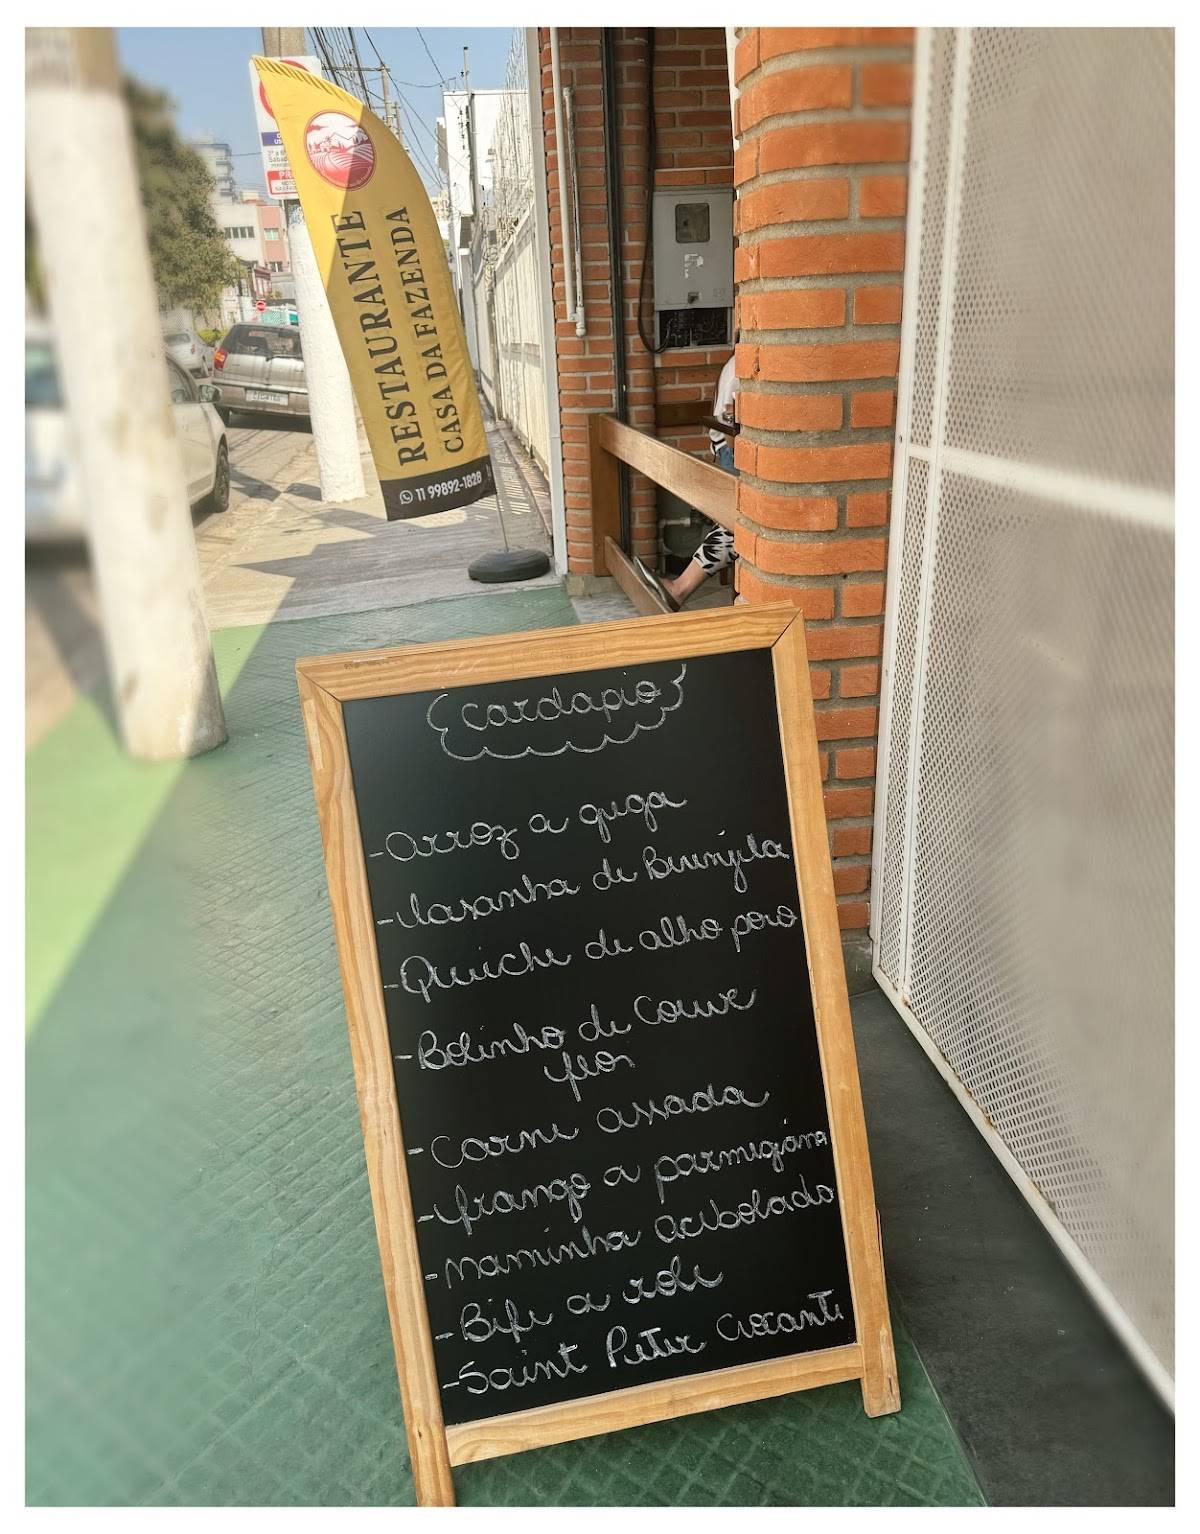 RESTAURANTE
CASA DA FAZENDA
11 99892-1828
cardapio
-Arroz a grega
-Lasanha de Berinjela
-Quiiche de alho poro
-Bolinho de Couve
flor
-Carne assada
-frango a parmegiana
-maminha acibolado
-Bife a role
-Saint Peter Crocante